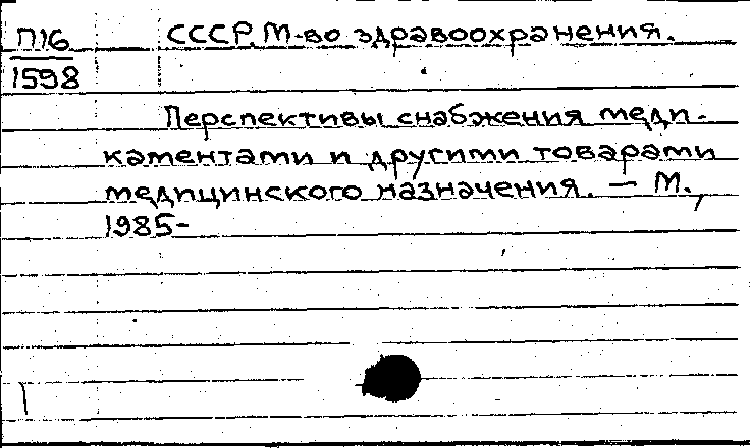 П16 СССР. М-во здравоохранения.
1598
Перспективы снабжения меди-
каментами и другими товарами
медицинского назначения. — М.,
1985-